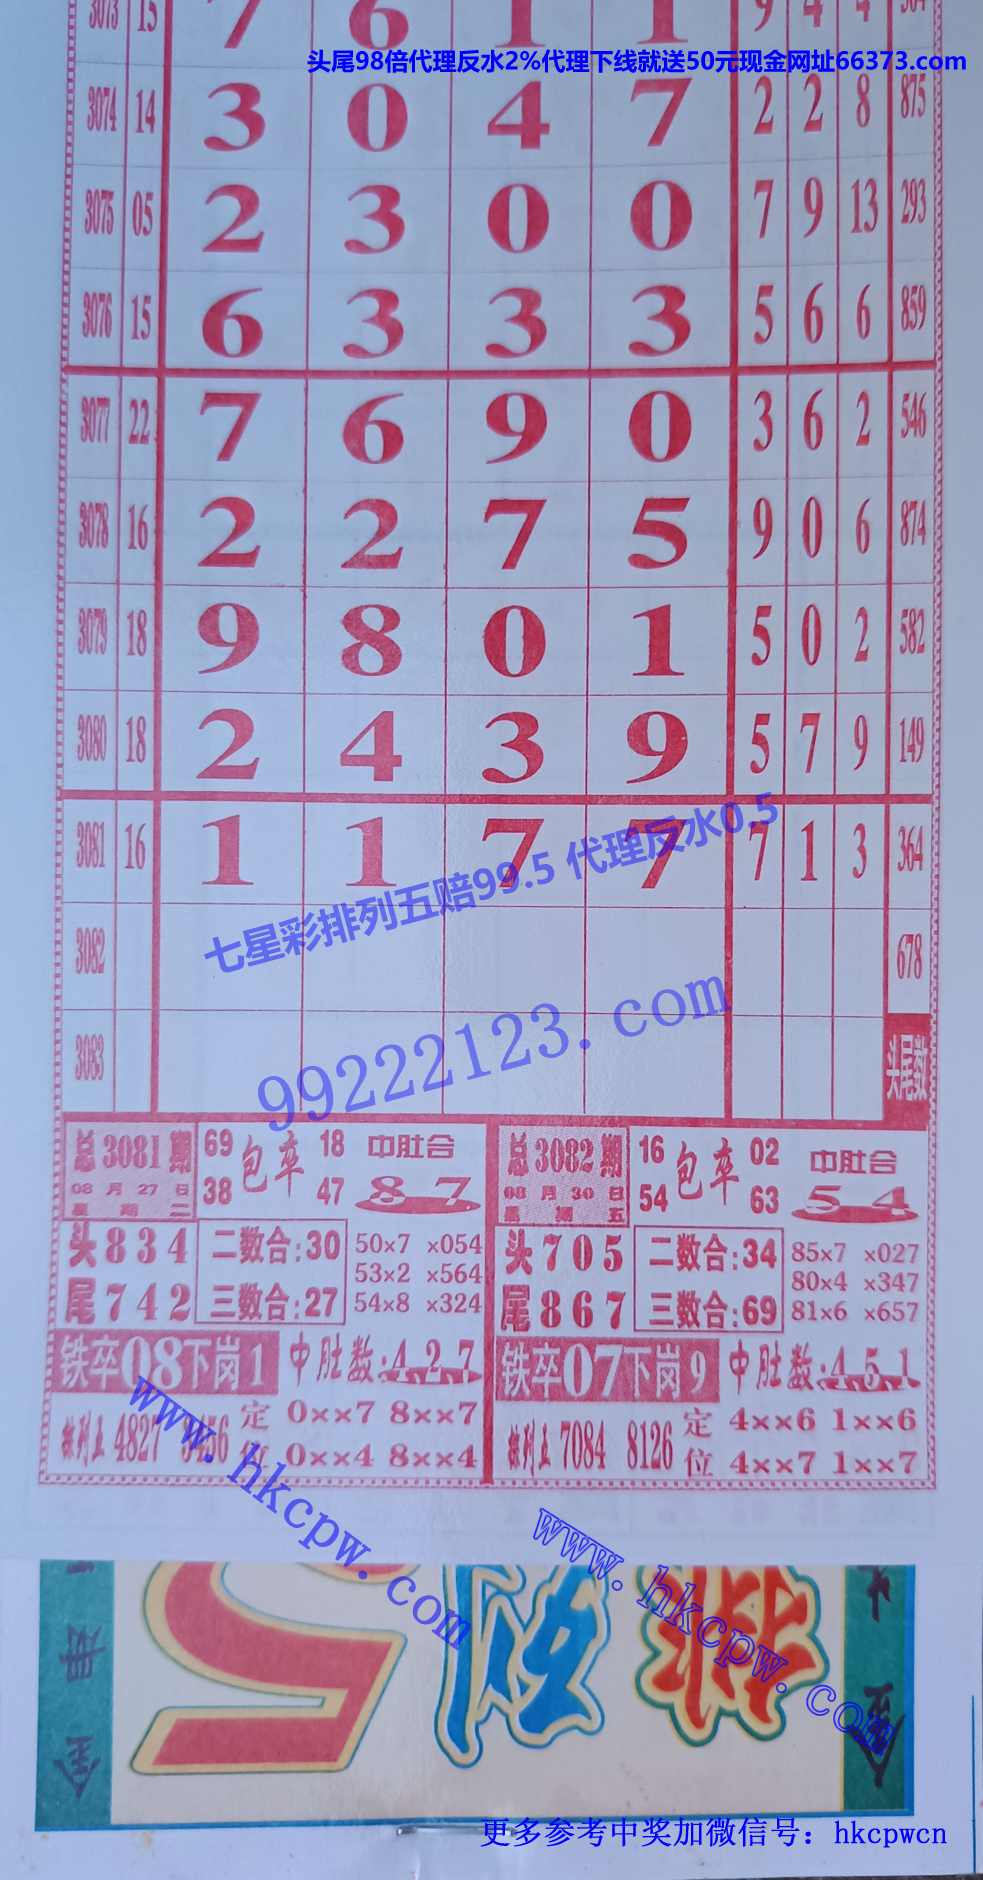 3073 15 7 6 1 1 9 4 4 364
头尾98倍代理反水2%代理下线就送50元现金网址66373.com
3074 14 3 0 4 7 2 2 8 875
3075 05 2 3 0 0 7 9 13 293
3076 15 6 3 3 3 5 6 6 859
3077 22 7 6 9 0 3 6 2 546
3078 16 2 2 7 5 9 0 6 874
3079 18 9 8 0 1 5 0 2 582
3080 18 2 4 3 9 5 7 9 149
3081 16 1 1 7 7 7 1 3 364
七星彩排列五赔99.5 代理反水0.5
3082 678
99222123.com
3083 头尾数
总3081期
08月27日
星期二
69 包卒 18
38 47
中肚合
87
头834
尾742
二数合:30
三数合:27
50×7 ×054
53×2 ×564
54×8 ×324
铁卒08下岗1
中肚数:4 2 7
排列五 4827 9456
定位
0××7 8××7
0××4 8××4
总3082期
08月30日
星期五
16 包卒 02
54 63
中肚合
54
头705
尾867
二数合:34
三数合:69
85×7 ×027
80×4 ×347
81×6 ×657
铁卒07下岗9
中肚数:4 5 1
排列五 7084 8126
定位
4××6 1××6
4××7 1××7
www.hkcpw.com
www.hkcpw.com
更多参考中奖加微信号：hkcpwcn